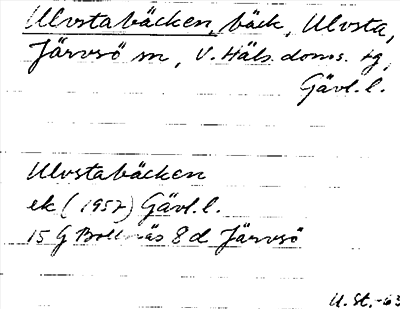 Ulvstabäcken, bäck, Ulvsta,
Järvsö sn, V. Häls. doms. tg,
Gävl. l.
Ulvstabäcken
ek (1957) Gävl. l.
15 G Bollnäs 8 d Järvsö
U. St. -63